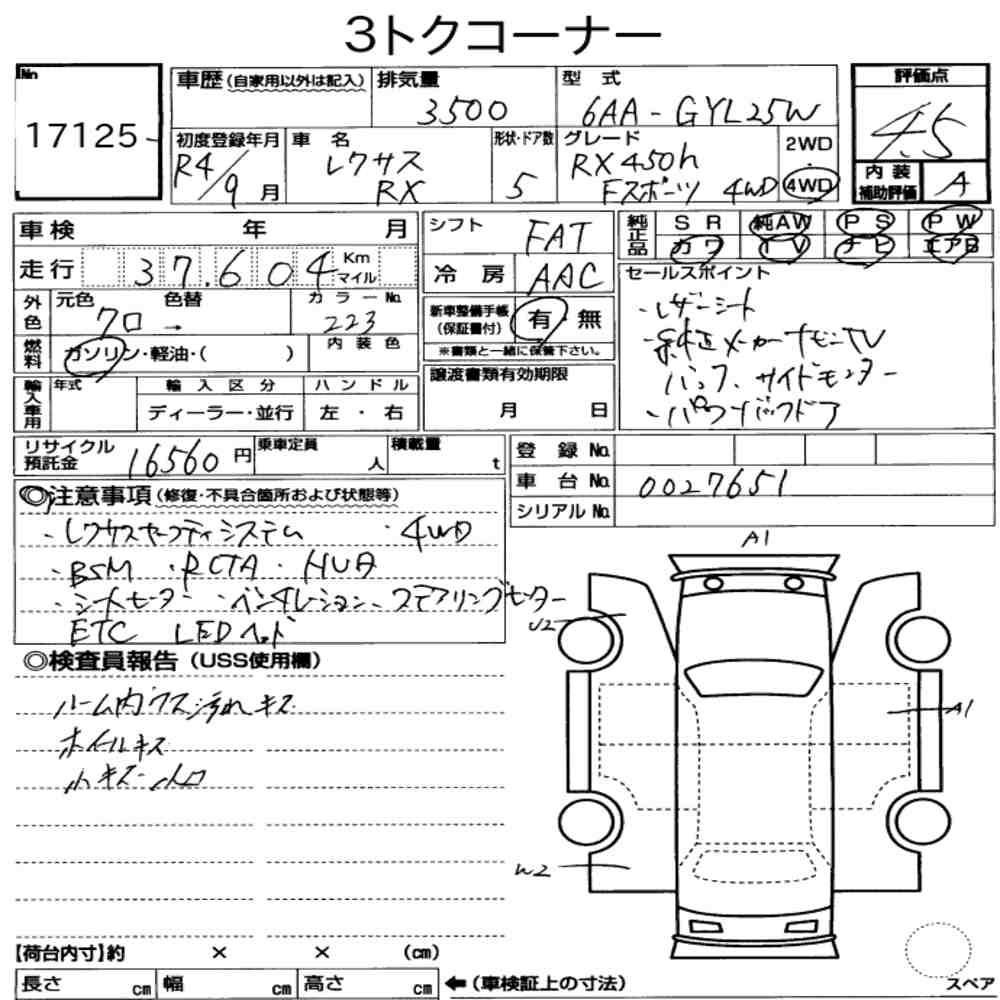 3トクコーナー
No
17125-
車歴(自家用以外は記入)
排気量
3500
型 式
6AA-GYL25W
評価点
4.5
初度登録年月
R4/9月
車 名
レクサス
RX
形状・ドア数
5
グレード
RX450h
Fスポーツ 4WD
2WD
4WD
内 装
補助評価
A
車検 年 月
走行 37,604 Km
マイル
シフト
FAT
冷 房
AAC
純正品
SR 純AW PS PW
カワ TV ナビ エアB
外色
元色 色替
クロ →
カラーNo.
223
新車整備手帳
(保証書付)
有・無
※書類と一緒に保管下さい。
セールスポイント
・レザーシート
・純正メーカーナビ・TV
バック、サイドモニター
・パワーバックドア
燃料
ガソリン・軽油・( )
内 装 色
輸入車用
年式
輸 入 区 分
ディーラー・並行
ハンドル
左 ・ 右
譲渡書類有効期限
月 日
リサイクル
預託金
16560円
乗車定員
人
積載量
t
登 録 No.
車 台 No. 0027651
シリアル No.
◎注意事項(修復・不具合箇所および状態等)
・レクサスセーフティシステム ・4WD
・BSM ・RCTA ・HUD
・シートヒーター ・ベンチレーション、ステアリングヒーター
ETC LEDヘッド
◎検査員報告(USS使用欄)
ルーム内クスミ汚れキズ
ホイルキズ
小キズ・小凹
A1
U2
A1
W2
【荷台内寸】約 × × (cm)
長さ cm 幅 cm 高さ cm ←(車検証上の寸法)
スペア